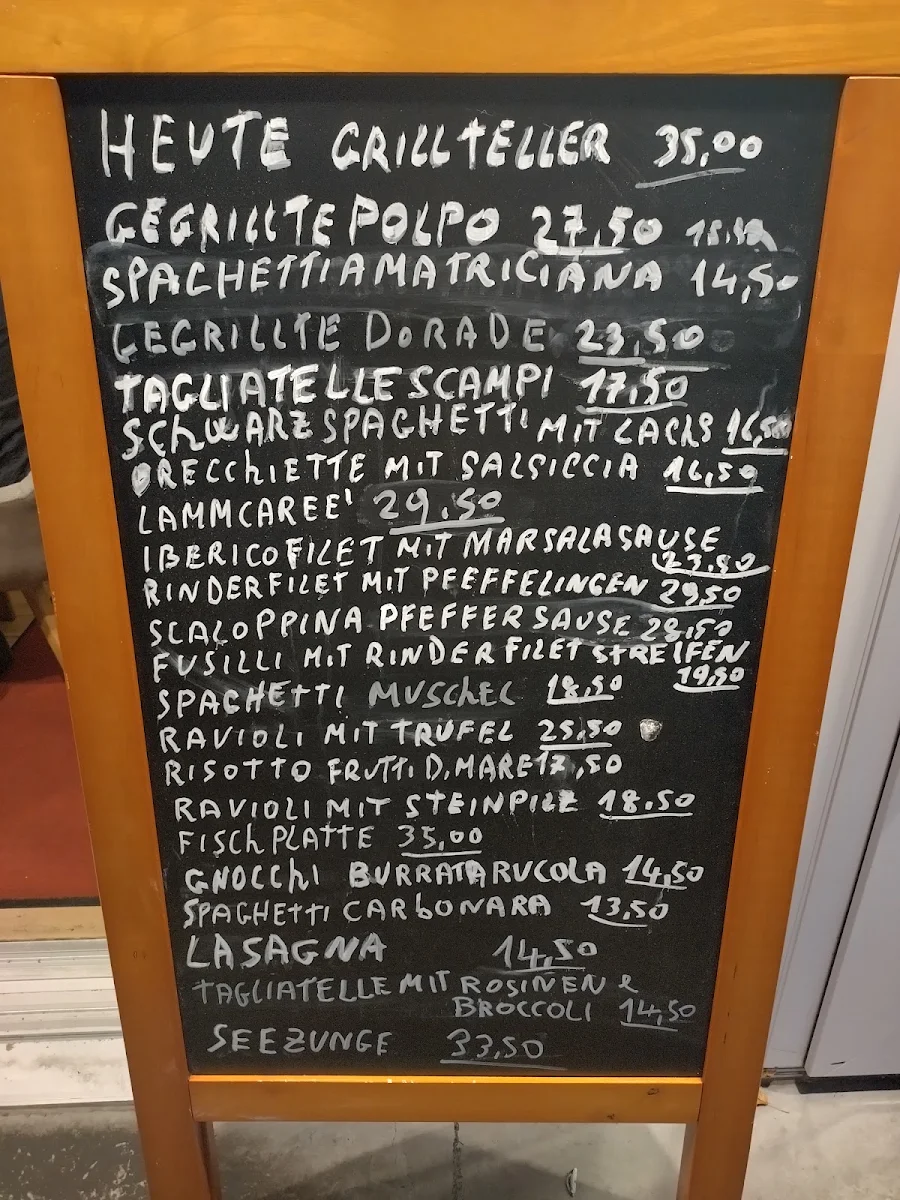 HEUTE GRILLTELLER 35,00
GEGRILLTE POLPO 27,50
SPAGHETTI AMATRICIANA 14,50
GEGRILLTE DORADE 23,50
TAGLIATELLE SCAMPI 17,50
SCHWARZ SPAGHETTI MIT LACHS 16,50
ORECCHIETTE MIT SALSICCIA 16,50
LAMMCAREE' 29.50
IBERICOFILET MIT MARSALASAUSE
23,50
RINDERFILET MIT PFEFFELINGEN 29,50
SCALOPPINA PFEFFERSAUSE 28,50
FUSILLI MIT RINDERFILET STREIFEN
19,50
SPAGHETTI MUSCHEL 18,50
RAVIOLI MIT TRUFEL 25,50
RISOTTO FRUTTI D,MARE 17,50
RAVIOLI MIT STEINPILZ 18.50
FISCH PLATTE 35,00
GNOCCHI BURRATA RUCOLA 14,50
SPAGHETTI CARBONARA 13,50
LASAGNA 14,50
TAGLIATELLE MIT ROSINEN &
BROCCOLI 14,50
SEEZUNGE 33,50